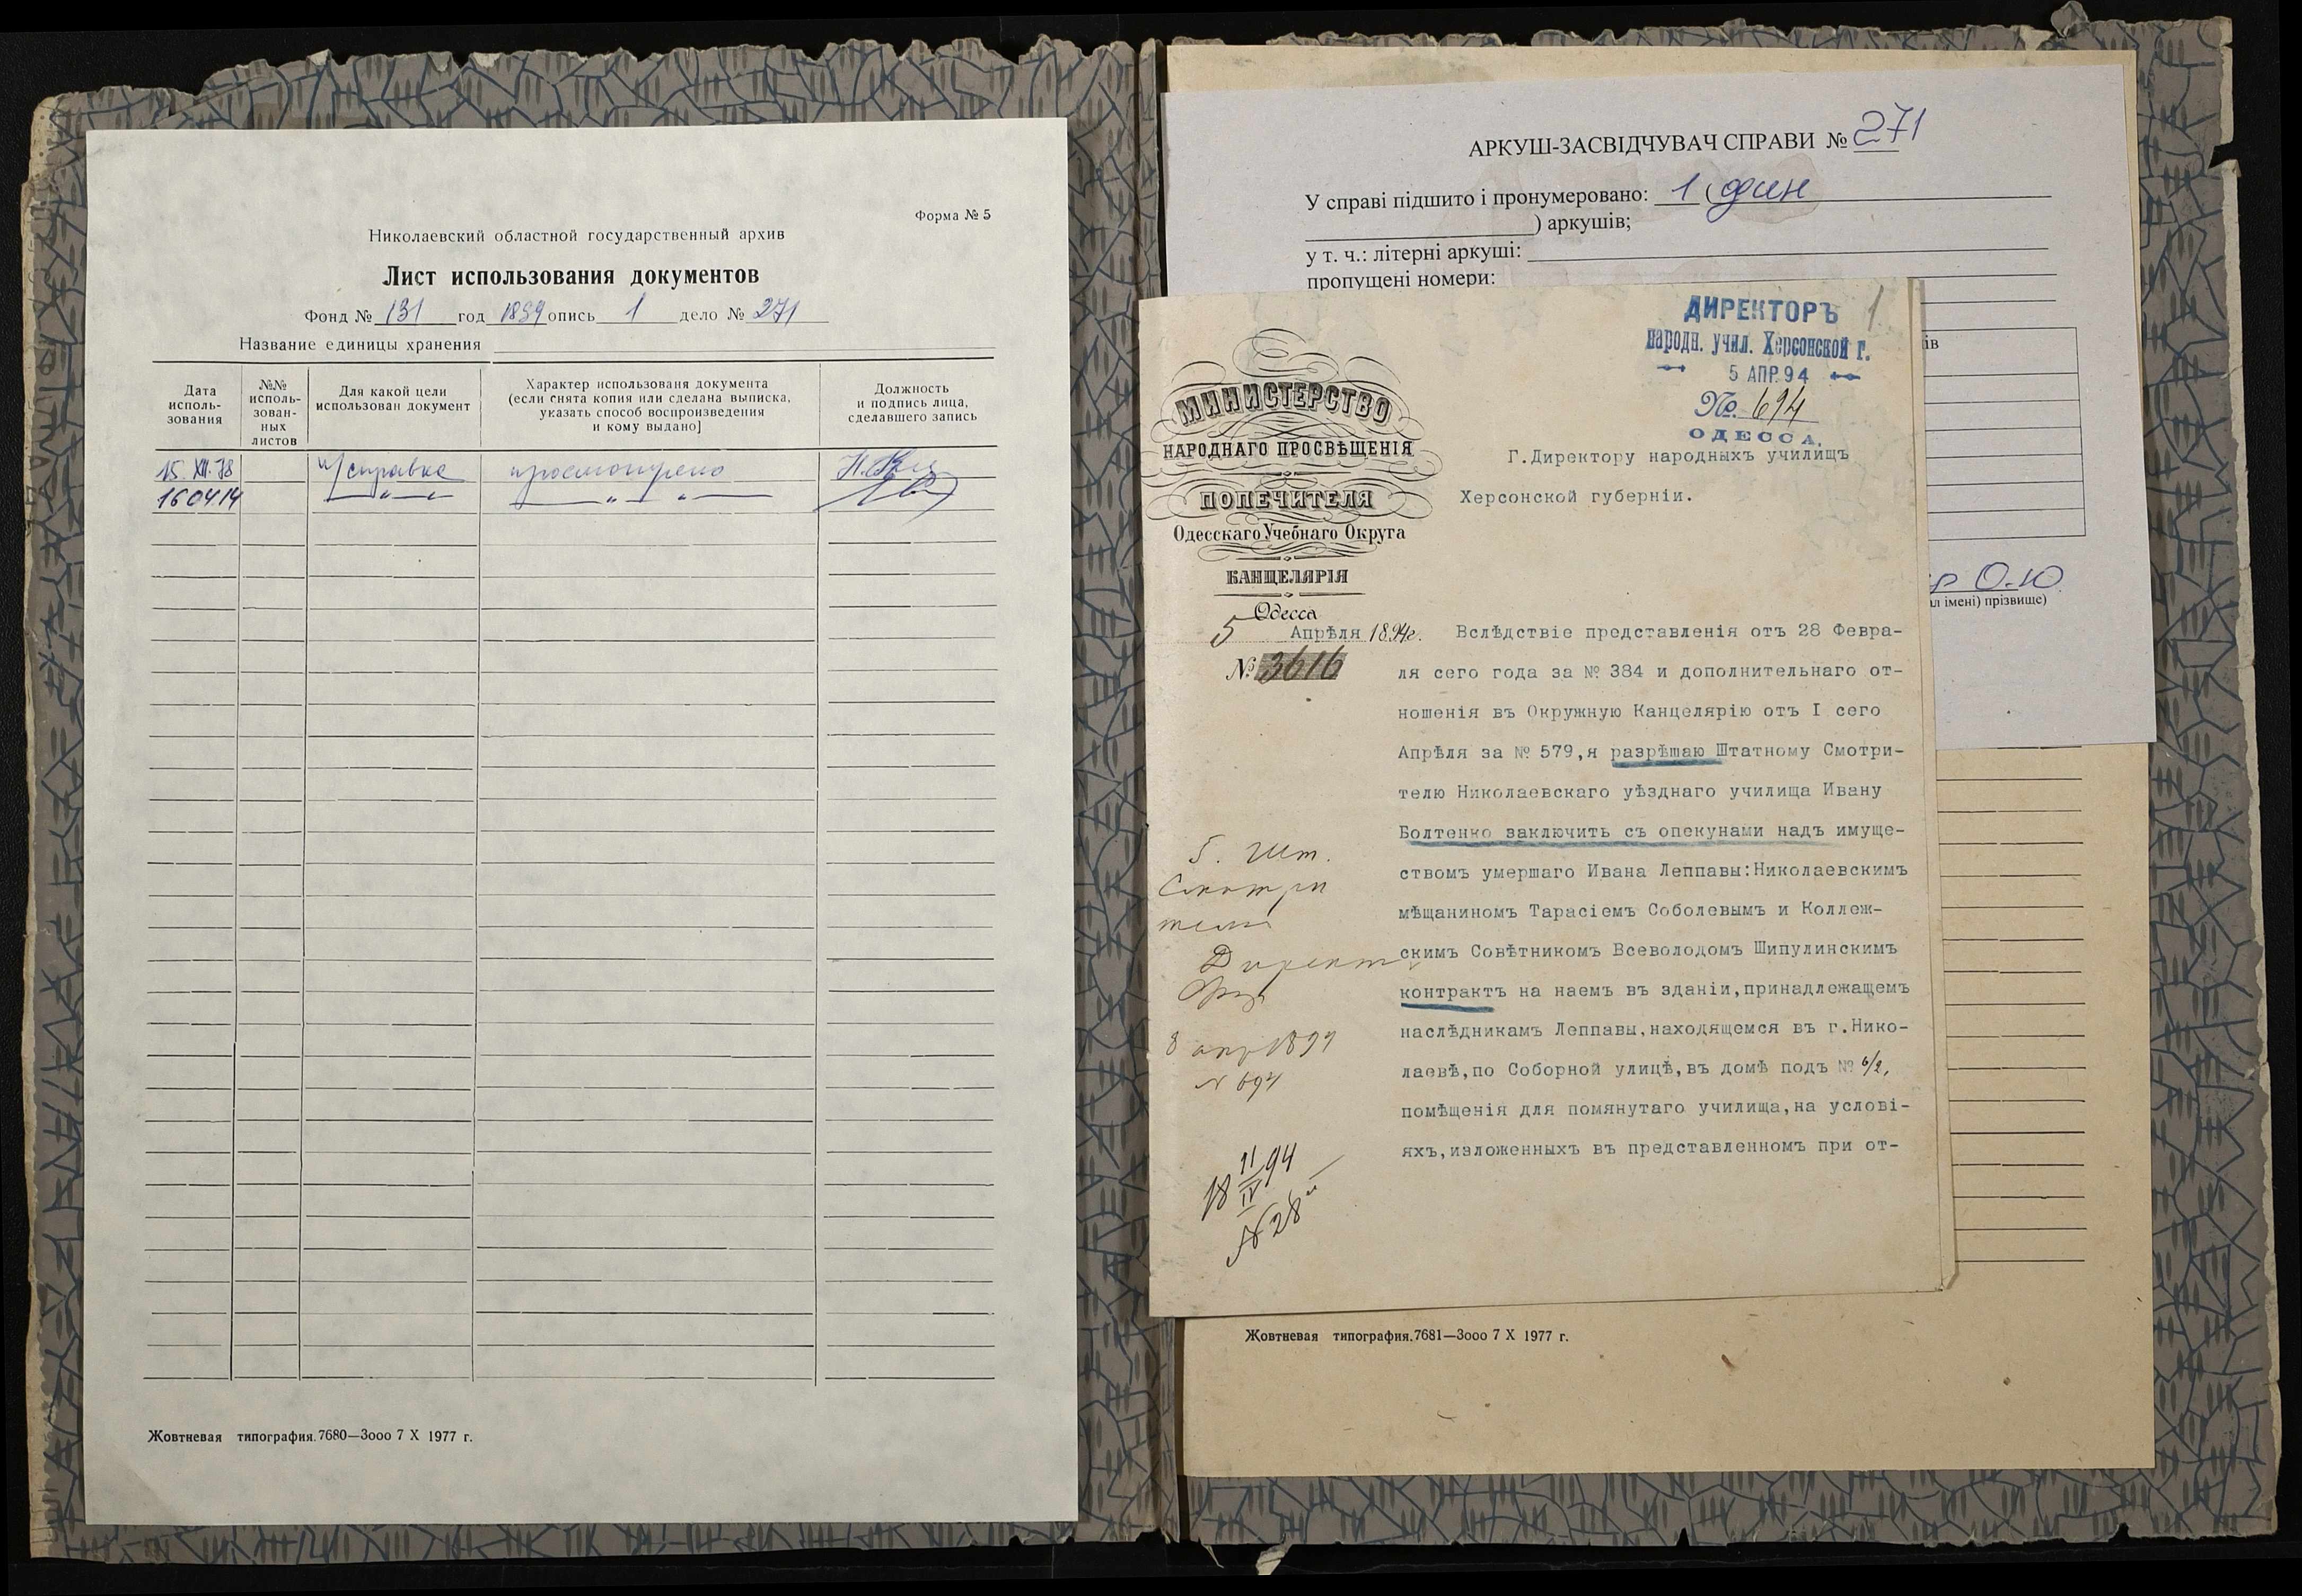 Форма № 5
Николаевский областной государственный архив
Лист использования документов
Фонд № 131 год 1899 опись 1 дело № 271
Название единицы хранения
Дата исполь- зования
№№ исполь- зован- ных листов
Для какой цели использован документ
Характер использованя документа (если снята копия или сделана выписка, указать способ воспроизведения и кому выдано]
Должность и подпись лица, сделавшего запись
15. XII.78 справка просмотрено
160414 — „ — — „ — „ —
Жовтневая типография.7680—3000 7 X 1977 г.
АРКУШ-ЗАСВІДЧУВАЧ СПРАВИ № 271
У справі підшито і пронумеровано: 1 (один
) аркушів;
у т. ч.: літерні аркуші:
пропущені номери:
ів
О.Ю.
імені) прізвище)
ДИРЕКТОРЪ 1
народн. учил. Херсонской г.
5 АПР. 94
№ 694
ОДЕССА.
МИНИСТЕРСТВО
НАРОДНАГО ПРОСВѢЩЕНІЯ
ПОПЕЧИТЕЛЯ
Одесскаго Учебнаго Округа
КАНЦЕЛЯРІЯ
Одесса
5 Апрѣля 1894г.
№ 3616
Г.Директору народныхъ училищъ
Херсонской губерніи.
Вслѣдствіе представленія отъ 28 Февра-
ля сего года за № 384 и дополнительнаго от-
ношенія въ Окружную Канцелярію отъ I сего
Апрѣля за № 579,я разрѣшаю Штатному Смотри-
телю Николаевскаго уѣзднаго училища Ивану
Болтенко заключить съ опекунами надъ имуще-
ствомъ умершаго Ивана Леппавы:Николаевскимъ
мѣщаниномъ Тарасіемъ Соболевымъ и Коллеж-
скимъ Совѣтникомъ Всеволодомъ Шипулинскимъ
контрактъ на наемъ въ зданіи,принадлежащемъ
наслѣдникамъ Леппавы,находящемся въ г.Нико-
лаевѣ,по Соборной улицѣ,въ домѣ подъ № 6/2,
помѣщенія для помянутаго училища,на услові-
яхъ,изложенныхъ въ представленномъ при от-
Г. Шт.
Смотри
телю
Директ
8 апр 1894
N 694
18 11/IV 94
N 28
Жовтневая типография.7681—3000 7 X 1977 г.